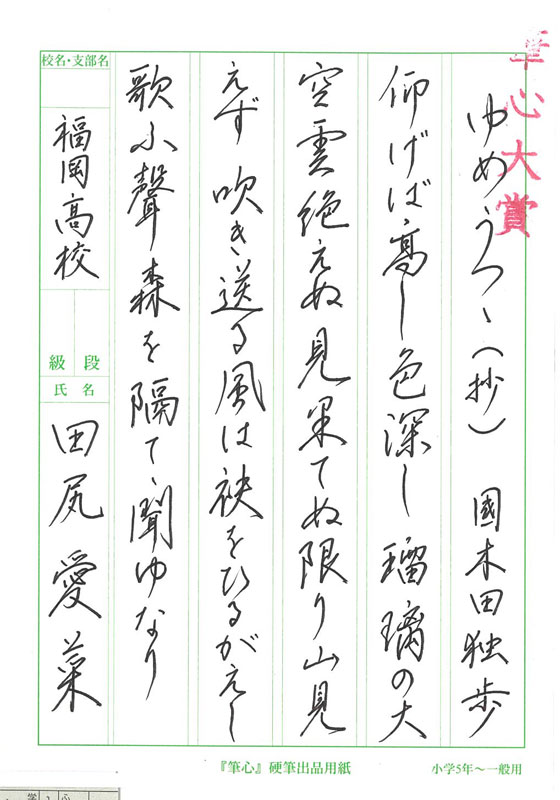 筆心大賞
ゆめうつゝ(抄) 國木田独歩
仰げば高し色深し 瑠璃の大
空雲絶えぬ見果てぬ限り山見
えず 吹き送る風は袂をひるがえし
歌ふ聲森を隔てゝ聞ゆなり
校名・支部名
福岡高校
級 段
氏名
田尻愛菜
『筆心』硬筆出品用紙
小学5年〜一般用